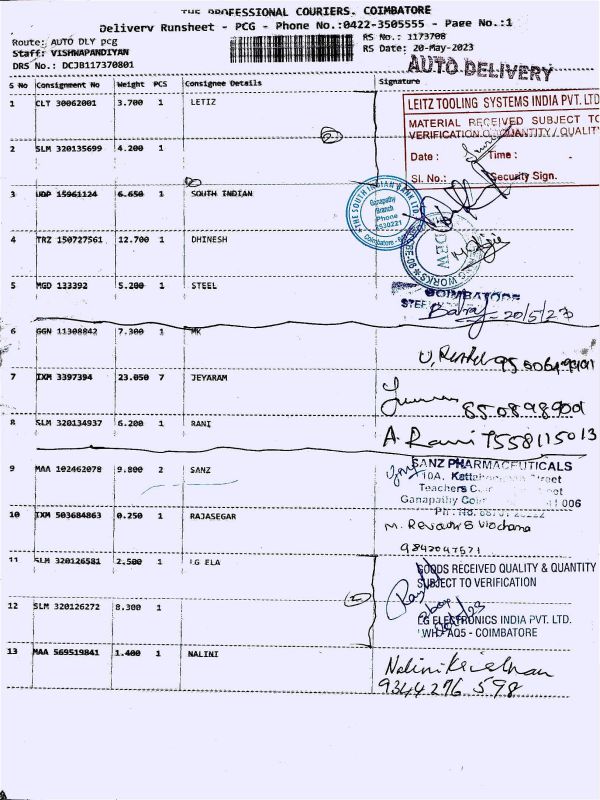 THE PROFESSIONAL COURIERS. COIMBATORE
Delivery Runsheet - PCG - Phone No.:0422-3505555 - Page No.:1
Route: AUTO DLY pcg
RS No.: 1173708
Staff: VISHWAPANDIYAN
RS Date: 20-May-2023
DRS No.: DCJB117370801
AUTO DELIVERY
S No Consignment No Weight PCS Consignee Details Signature
1 CLT 30062001 3.700 1 LETIZ
LEITZ TOOLING SYSTEMS INDIA PVT. LTD
MATERIAL RECEIVED SUBJECT TO
VERIFICATION QUANTITY / QUALITY
2 SLM 320135699 4.200 1
Date : Time :
Sl. No.: Security Sign.
3 UDP 15961124 6.650 1 SOUTH INDIAN
THE SOUTH INDIAN BANK LTD.
Ganapathy
Branch
Phone
2530221
Coimbatore
4 TRZ 150727561 12.700 1 DHINESH
WORKS
5 MGD 133392 5.200 1 STEEL
COIMBATORE
20/5/23
6 GGN 11308842 7.300 1 MK
7 IXM 3397394 23.050 7 JEYARAM
8508989001
8 SLM 320134937 6.200 1 RANI
A. Rani 7558115013
9 MAA 102462078 9.800 2 SANZ
SANZ PHARMACEUTICALS
10A, Street
Teachers
Ganapathy 006
10 IXM 503684863 0.250 1 RAJASEGAR
9842047571
11 SLM 320126581 2.500 1 LG ELA
GOODS RECEIVED QUALITY & QUANTITY
SUBJECT TO VERIFICATION
12 SLM 320126272 8.300 1
LG ELECTRONICS INDIA PVT. LTD.
WH-AQ5 - COIMBATORE
13 MAA 569519841 1.400 1 NALINI
Nalini
9344276598